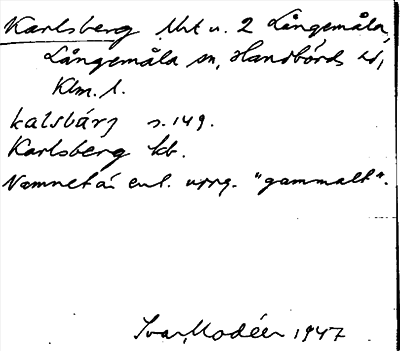 Karlsberg Uht u. 2 Långemåla,
Långemåla sn, Handbörds hd,
Klm. l.
kalsbárj s. 149.
Karlsberg kb.
Namnet är enl. uppg. "gammalt".
Ivar Modéer 1947